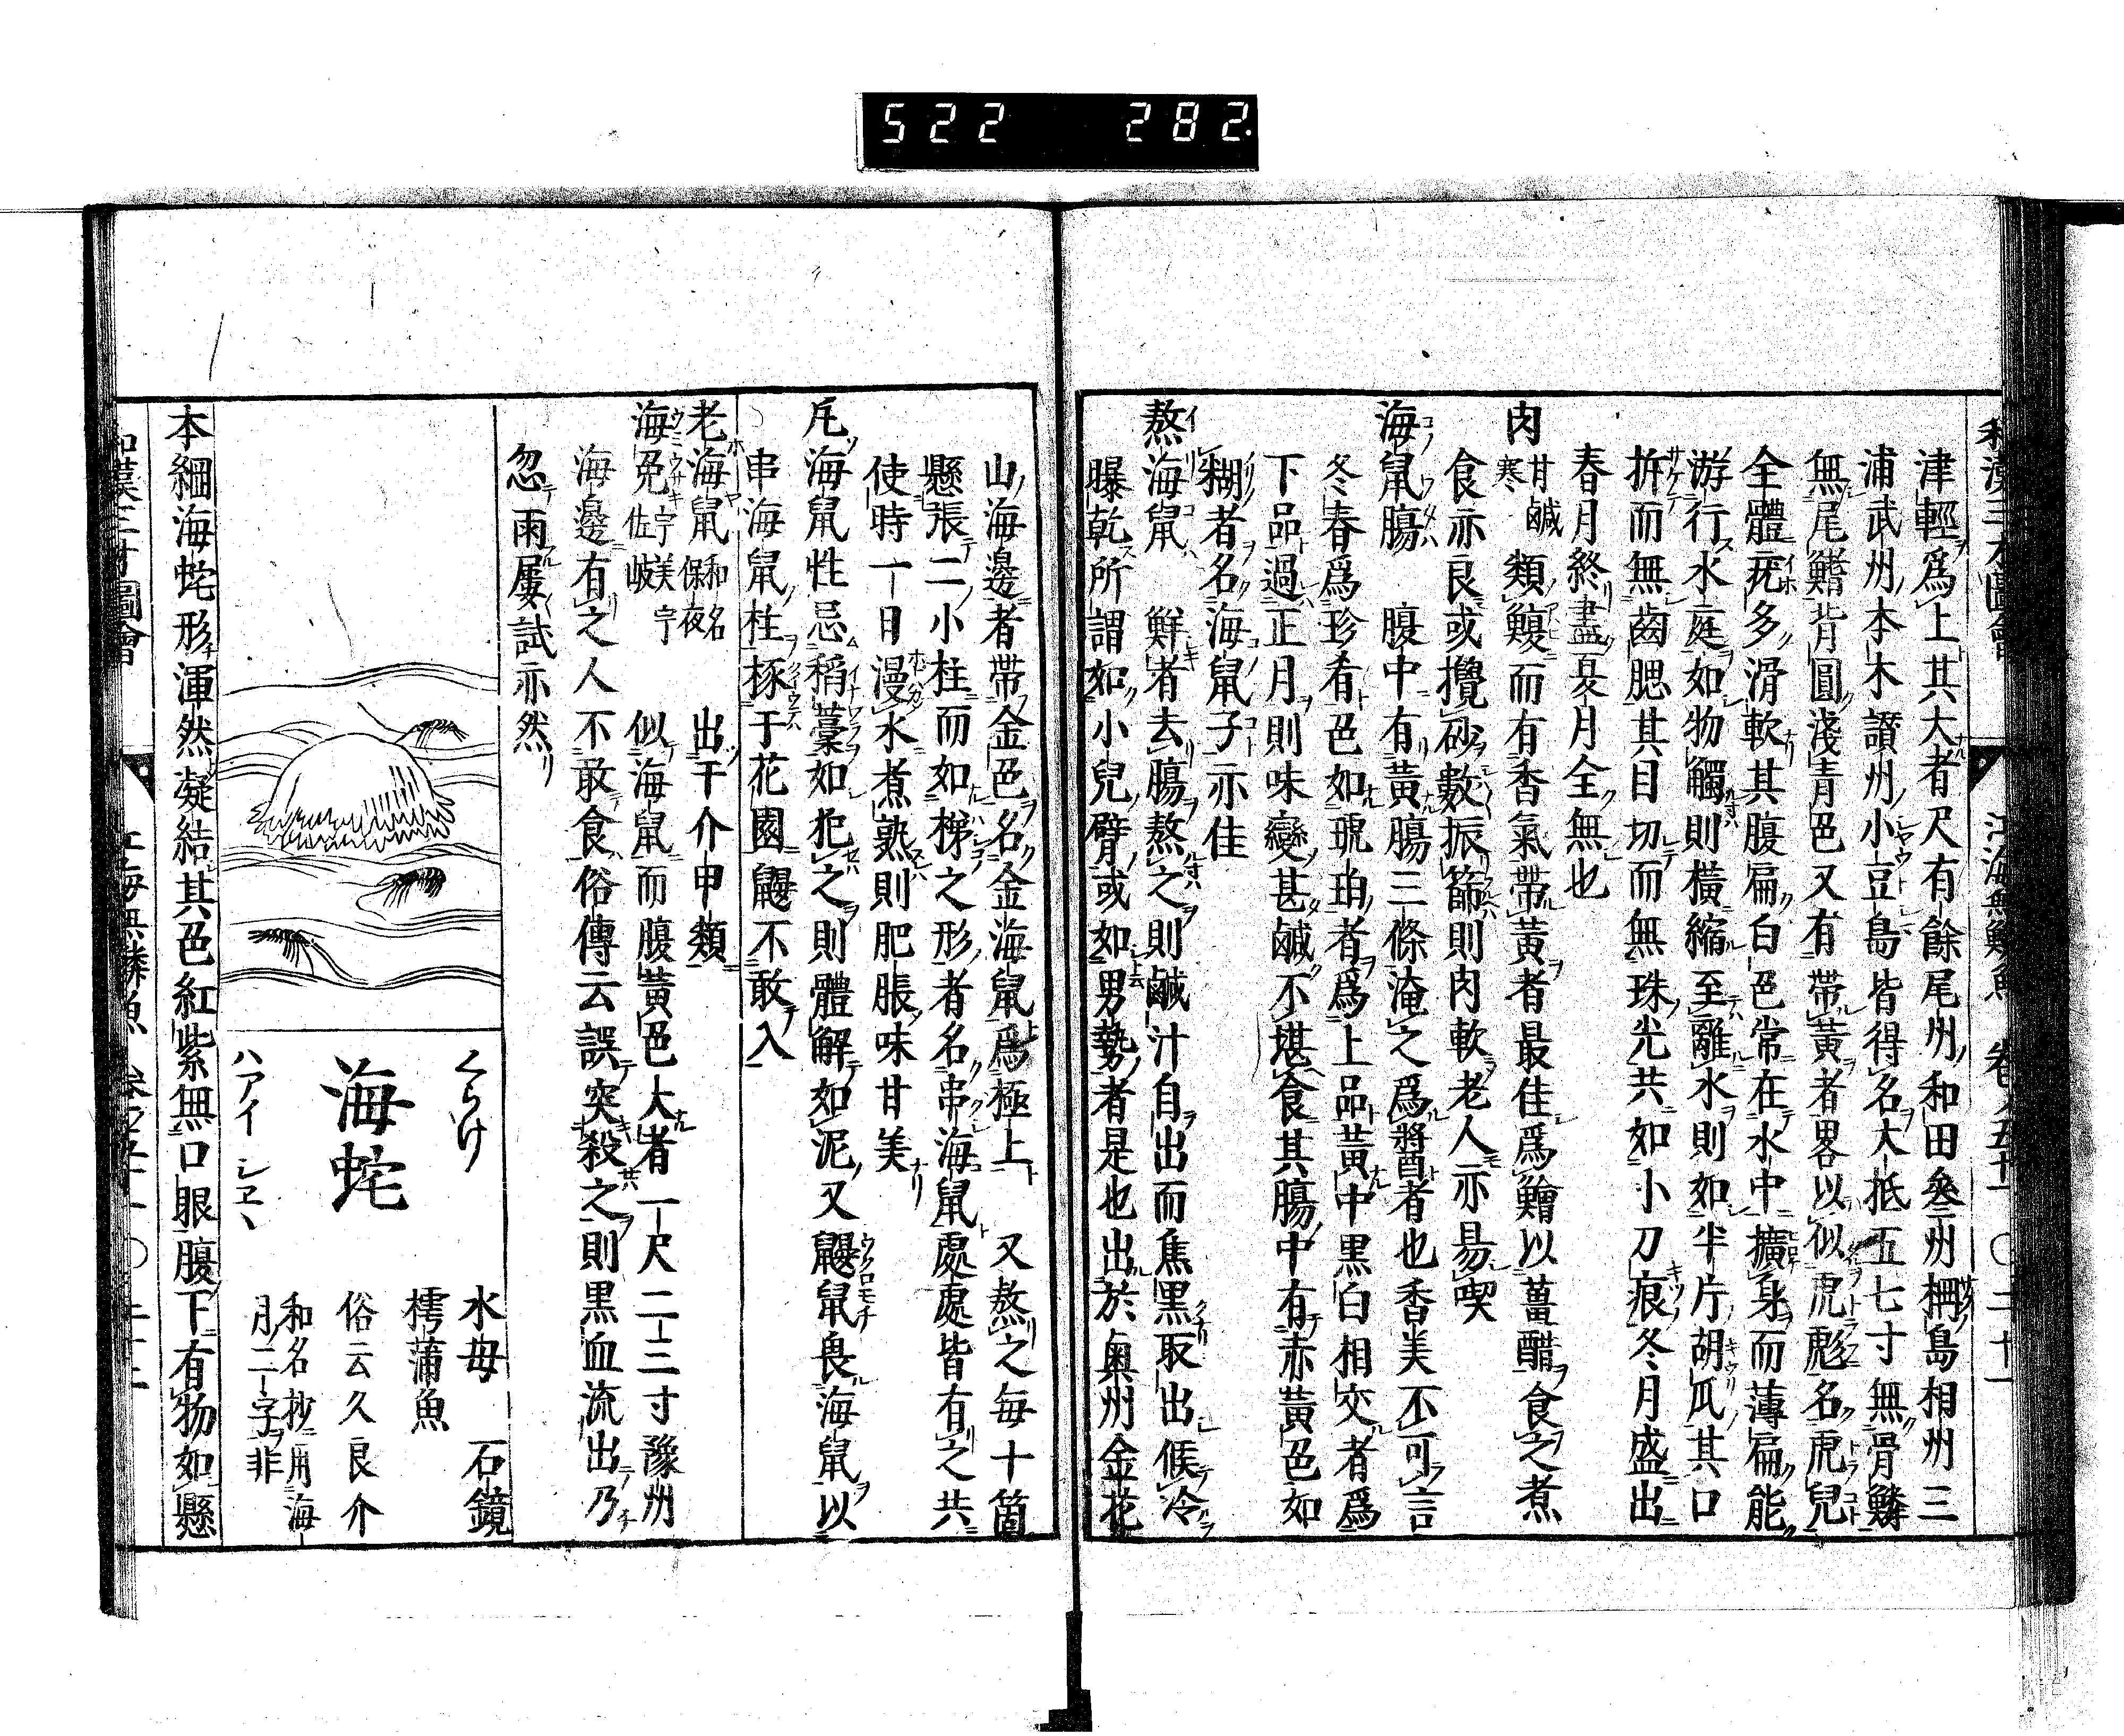 522 282.
和漢三才圖會 江海無鱗魚 卷ノ五十一 〇二十一
津輕爲上其大者尺有餘尾州和田叅州柵島相州三
浦武州本木讃州小豆島皆得名大抵五七寸無骨鱗
無尾鰭背圓淺青色又有帶黃者畧以似虎彪名虎兒
全體疣多滑軟其腹扁白色常在水中擴身而薄扁能
游行水底如物觸則橫縮至離水則如半片胡瓜其口
拆而無齒腮其目切而無珠光共如小刀痕冬月盛出
春月終盡夏月全無也
肉 甘鹹寒 類鰒而有香氣帶黃者最佳爲鱠以薑醋食之煮
食亦良或攪砂數振篩則肉軟老人亦易喫
海鼠腸 腹中有黃腸三條淹之爲醬者也香美不可言
冬春爲珍肴色如琥珀者爲上品黃中黑白相交者爲
下品過正月則味變甚鹹不堪食其腸中有赤黃色如
糊者名海鼠子亦佳
熬海鼠 鮮者去腸熬之則鹹汁自出而焦黑取出候冷
曝乾所謂如小兒臂或如男勢者是也出於奧州金花
山海邊者帶金色名金海鼠爲極上 又熬之每十箇
懸張二小柱而如梯之形者名串海鼠處處皆有之共
使時一日漫水煮熟則肥脹味甘美
凡海鼠性忌稻藁如犯之則體解如泥又鼴鼠畏海鼠以
串海鼠柱㧻于花園鼴不敢入
老海鼠 和名保夜 出于介甲類
海兔 宇美宇佐岐 似海鼠而腹黃色大者一尺二三寸豫州
海邊有之人不敢食俗傳云誤突殺之則黑血流出乃
忽雨屢試亦然
くらけ
海蛇
ハアイ シヱヽ
水母 石鏡
樗蒲魚
俗云久良介
和名抄用海
月二字非
本綱海蛇形渾然凝結其色紅紫無口眼腹下有物如懸
和漢三才圖會 江海無鱗魚 卷ノ五十一 〇二十二